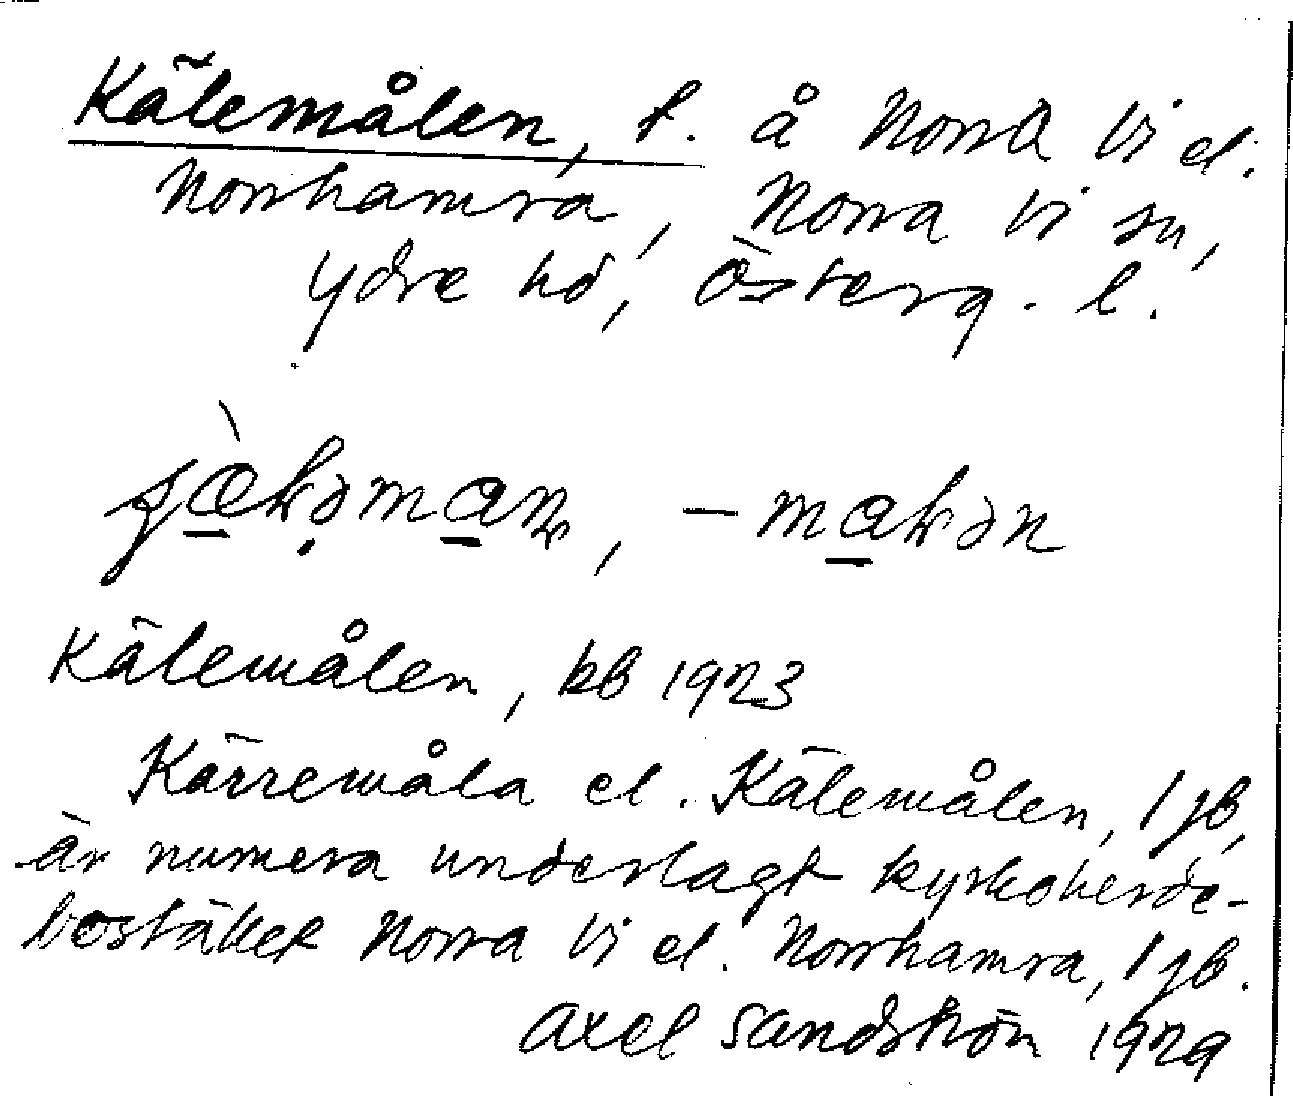 Kälemålen, t. å Norra Vi el.
Norrhamra, Norra Vi sn,
Ydre hd, Österg. l.
Kälemålen, kb 1923
Kärremåla el. Kälemålen, 1 jb,
är numera underlagt kyrkoherde-
bostället Norra Vi el. Norrhamra, 1 jb.
Axel Sandström 1929